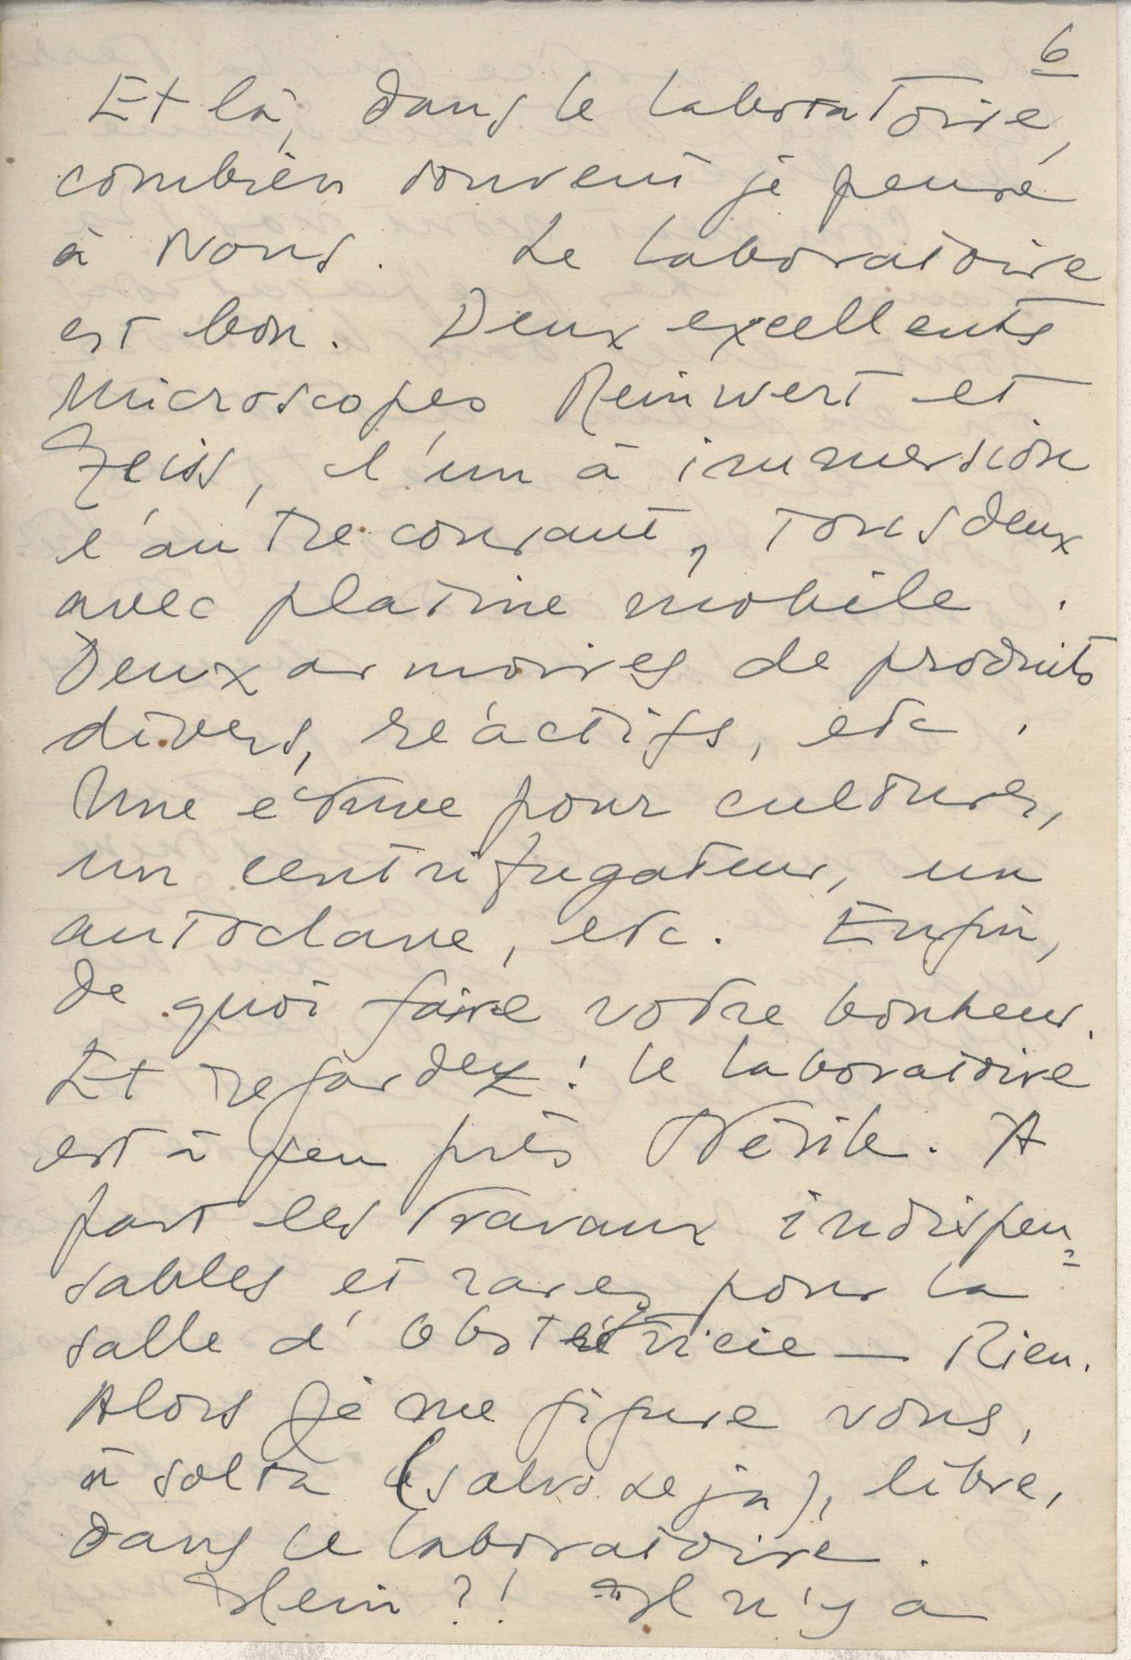 6
Et là, dans le laboratoire,
combien souvent je pense
à Vous. Le laboratoire
est bon. Deux excellents
Microscopes Reinwert et
Zeiss, l'un à immersion
l'autre courant, tous deux
avec platine mobile.
Deux armoires de produits
divers, réactifs, etc.
Une étuve pour cultures,
un centrifugateur, un
autoclave, etc. Enfin,
de quoi faire votre bonheur.
Et regardez! le laboratoire
est à peu près stérile. A
part les travaux indispen=
sables et rares pour la
salle d'Obstétricie — Rien.
Alors je me figure vous,
à solta (salvo seja), libre,
dans le laboratoire.
Hein?! Il n'y a